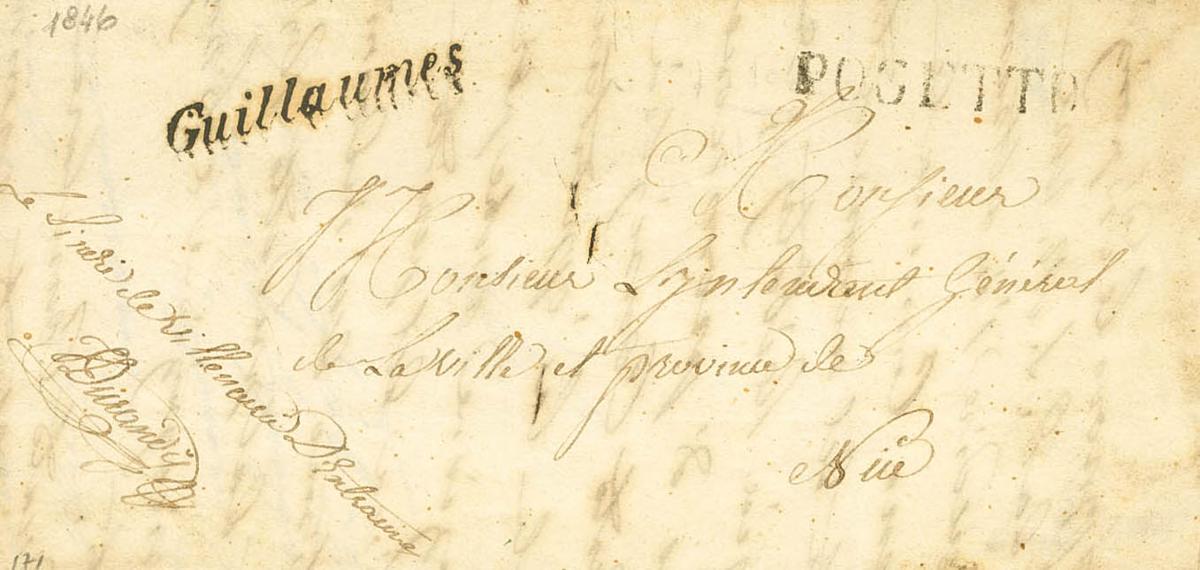 1846
Guillaumes
POSETTE
Monsieur
Monsieur Lyntendant Général
de La ville et province de
Nice
Le Sindic de Villeneuve D'Entraunes
Durandy
171